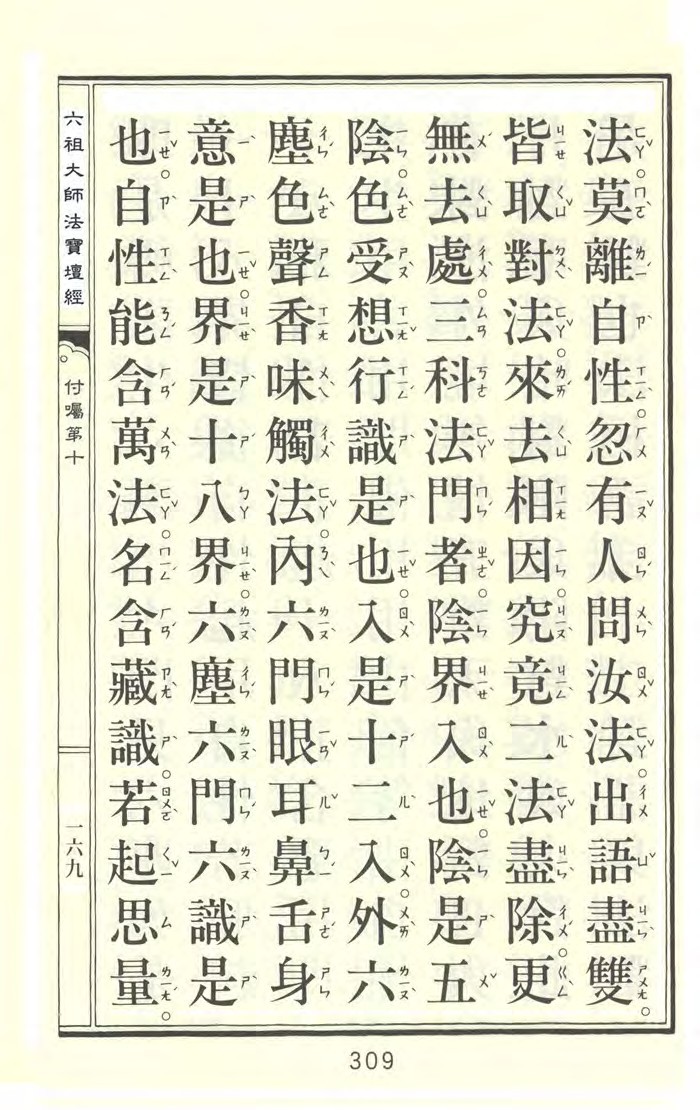 法莫離自性。忽有人問汝法。出語盡雙。
皆取對法。來去相因。究竟二法盡除。更
無去處。三科法門者。陰界入也。陰是五
陰。色受想行識是也。入是十二入。外六
塵。色聲香味觸法。內六門。眼耳鼻舌身
意是也。界是十八界。六塵六門六識是
也。自性能含萬法。名含藏識。若起思量。
六祖大師法寶壇經
付囑第十
一六九
309